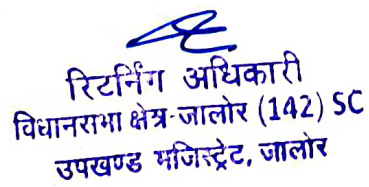 रिटर्निंग अधिकारी
विधानसभा क्षेत्र-जालोर (142) SC
उपखण्ड मजिस्ट्रेट, जालोर